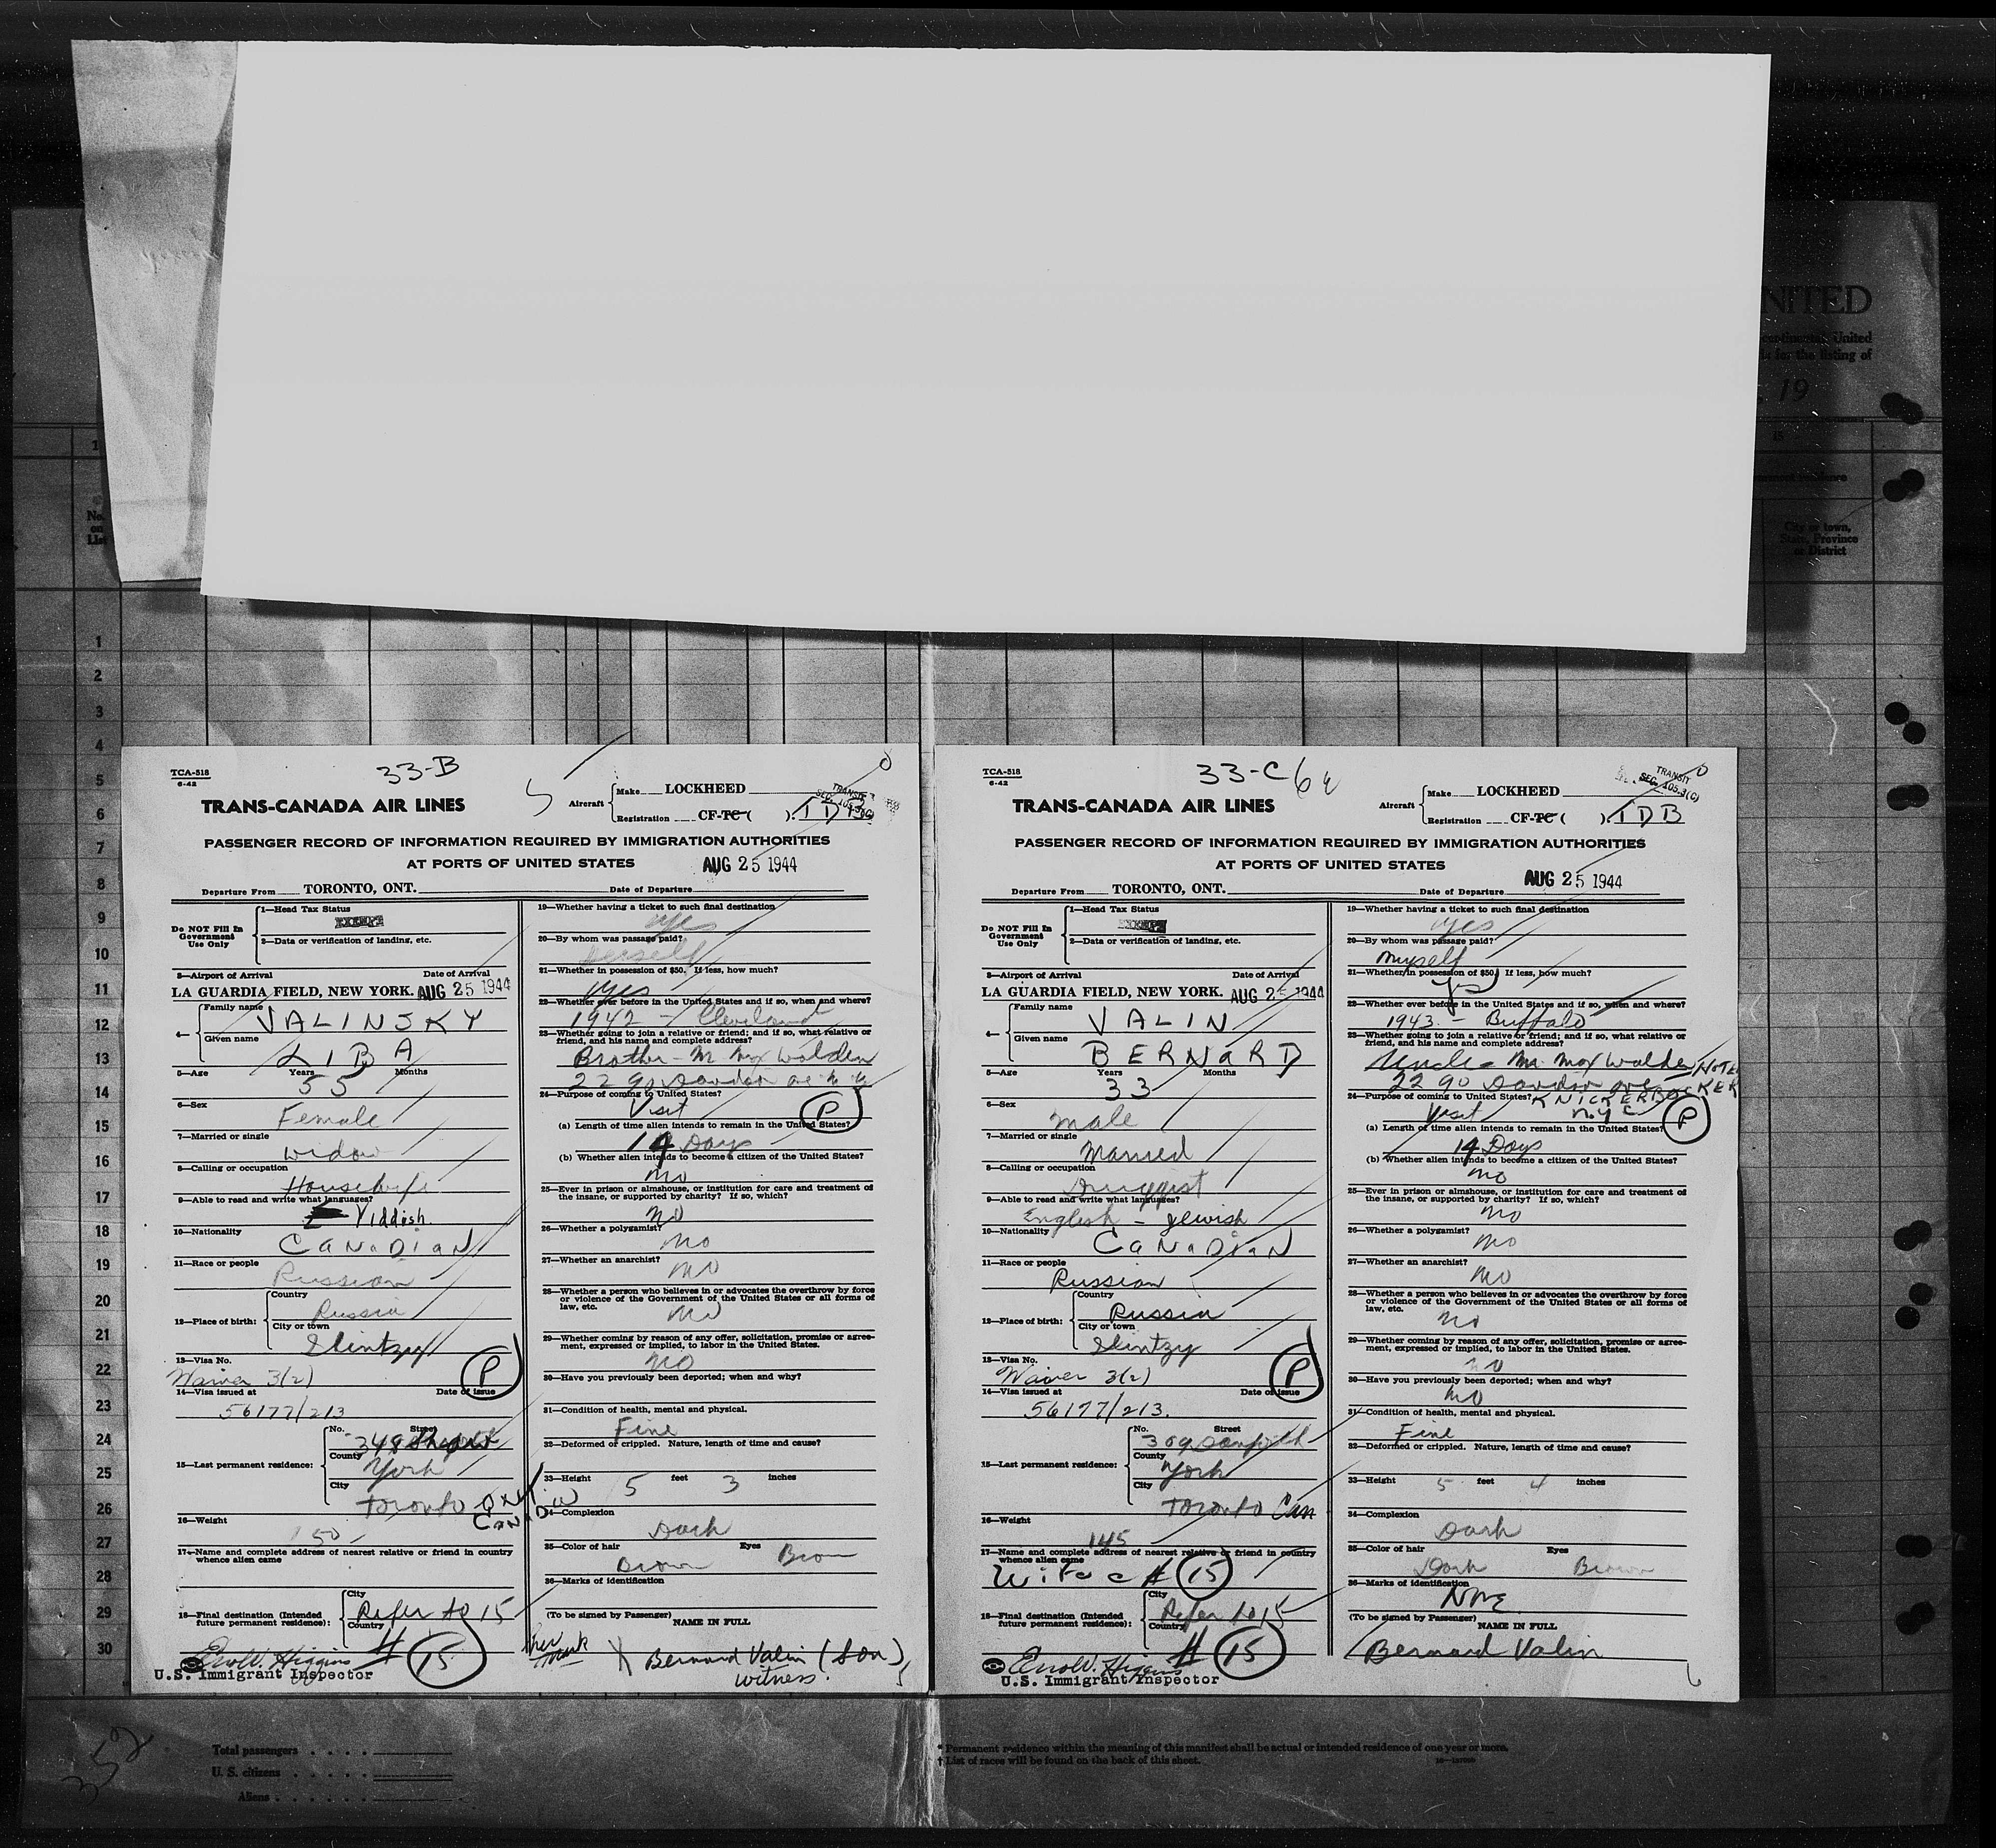 NITED
United
for the listing of
19
15
1
No.
on
List
City or town,
State, Province
or District
1
2
3
4
5
6
7
8
9
10
11
12
13
14
15
16
17
18
19
20
21
22
23
24
25
26
27
28
29
30
33-B
TCA-518
6-42
TRANS-CANADA AIR LINES
Aircraft
Make LOCKHEED
Registration CF-TC ( ). TDB
TRANSIT
SEC. 105.3(C)
PASSENGER RECORD OF INFORMATION REQUIRED BY IMMIGRATION AUTHORITIES
AT PORTS OF UNITED STATES AUG 25 1944
Departure From TORONTO, ONT. Date of Departure
Do NOT Fill In
Government
Use Only
1—Head Tax Status
EXEMPT
2—Data or verification of landing, etc.
3—Airport of Arrival Date of Arrival
LA GUARDIA FIELD, NEW YORK. AUG 25 1944
4— Family name
VALINSKY
Given name
LIBA
5—Age Years Months
55
6—Sex
Female
7—Married or single
widow
8—Calling or occupation
Housewife
9—Able to read and write what languages?
Yiddish.
10—Nationality
CANADIAN
11—Race or people
Russian
12—Place of birth:
Country
Russia
City or town
Slintzy
13—Visa No.
Waiver 3(2) P
14—Visa issued at Date of issue
56177/213
15—Last permanent residence:
No. Street
348
County
York
City
Toronto ONT
CANADA
16—Weight
150
17—Name and complete address of nearest relative or friend in country
whence alien came
18—Final destination (Intended
future permanent residence):
City
Refer to 15
Country
# 15
Errol W. Higgins
U.S. Immigrant Inspector
19—Whether having a ticket to such final destination
yes
20—By whom was passage paid?
herself
21—Whether in possession of $50. If less, how much?
yes
22—Whether ever before in the United States and if so, when and where?
1942 - Cleveland
23—Whether going to join a relative or friend; and if so, what relative or
friend, and his name and complete address?
Brother - Mr. Max Walden
2290 Davidson ave N.Y.
24—Purpose of coming to United States?
Visit P
(a) Length of time alien intends to remain in the United States?
14 Days
(b) Whether alien intends to become a citizen of the United States?
no
25—Ever in prison or almshouse, or institution for care and treatment of
the insane, or supported by charity? If so, which?
no
26—Whether a polygamist?
no
27—Whether an anarchist?
no
28—Whether a person who believes in or advocates the overthrow by force
or violence of the Government of the United States or all forms of
law, etc.
no
29—Whether coming by reason of any offer, solicitation, promise or agree-
ment, expressed or implied, to labor in the United States.
no
30—Have you previously been deported; when and why?
31—Condition of health, mental and physical.
Fine
32—Deformed or crippled. Nature, length of time and cause?
33—Height 5 feet 3 inches
34—Complexion
Dark
35—Color of hair Eyes
Brown Brown
36—Marks of identification
(To be signed by Passenger) NAME IN FULL
her mark X Bernard Valin (son)
witness.
33-C
TCA-518
6-42
TRANS-CANADA AIR LINES
Aircraft
Make LOCKHEED
Registration CF-TC ( ). TDB
TRANSIT
SEC. 105.3(C)
PASSENGER RECORD OF INFORMATION REQUIRED BY IMMIGRATION AUTHORITIES
AT PORTS OF UNITED STATES
AUG 25 1944
Departure From TORONTO, ONT. Date of Departure
Do NOT Fill In
Government
Use Only
1—Head Tax Status
EXEMPT
2—Data or verification of landing, etc.
3—Airport of Arrival Date of Arrival
LA GUARDIA FIELD, NEW YORK. AUG 25 1944
4— Family name
VALIN
Given name
BERNARD
5—Age Years Months
33
6—Sex
male
7—Married or single
Married
8—Calling or occupation
Druggist
9—Able to read and write what languages?
English - Jewish
10—Nationality
CANADIAN
11—Race or people
Russian
12—Place of birth:
Country
Russia
City or town
Slintzy
13—Visa No.
Waiver 3(2) P
14—Visa issued at Date of issue
56177/213.
15—Last permanent residence:
No. Street
309 Danforth
County
York
City
Toronto Can
16—Weight
145
17—Name and complete address of nearest relative or friend in country
whence alien came
Wife c # 15
18—Final destination (Intended
future permanent residence):
City
Refer to 15
Country
# 15
Errol W. Higgins
U.S. Immigrant Inspector
19—Whether having a ticket to such final destination
yes
20—By whom was passage paid?
myself
21—Whether in possession of $50. If less, how much?
yes
22—Whether ever before in the United States and if so, when and where?
1943 - Buffalo
23—Whether going to join a relative or friend; and if so, what relative or
friend, and his name and complete address?
Uncle - Mr. Max Walden HOTEL
2290 Davidson ave KNICKERBOCKER
24—Purpose of coming to United States?
Visit N.Y.C P
(a) Length of time alien intends to remain in the United States?
14 Days
(b) Whether alien intends to become a citizen of the United States?
no
25—Ever in prison or almshouse, or institution for care and treatment of
the insane, or supported by charity? If so, which?
no
26—Whether a polygamist?
no
27—Whether an anarchist?
no
28—Whether a person who believes in or advocates the overthrow by force
or violence of the Government of the United States or all forms of
law, etc.
no
29—Whether coming by reason of any offer, solicitation, promise or agree-
ment, expressed or implied, to labor in the United States.
no
30—Have you previously been deported; when and why?
no
31—Condition of health, mental and physical.
Fine
32—Deformed or crippled. Nature, length of time and cause?
33—Height 5 feet 4 inches
34—Complexion
Dark
35—Color of hair Eyes
Dark Brown
36—Marks of identification
None
(To be signed by Passenger) NAME IN FULL
Bernard Valin
352
Total passengers
U. S. citizens
Aliens
* Permanent residence within the meaning of this manifest shall be actual or intended residence of one year or more.
† List of races will be found on the back of this sheet.